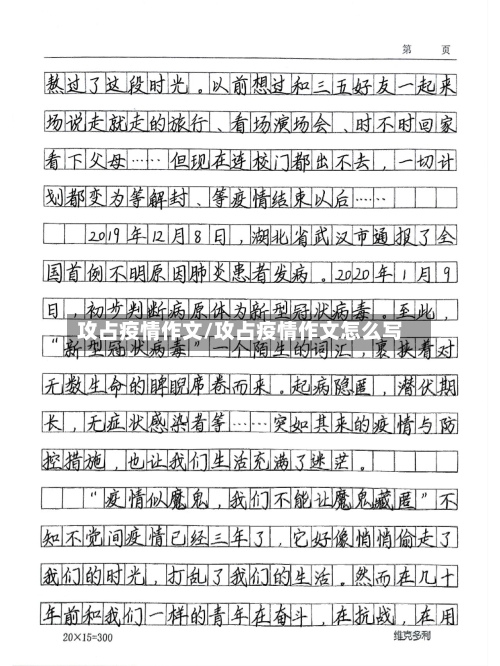 第 页
熬过了这段时光。以前想过和三五好友一起来
场说走就走的旅行、看场演场会、时不时回家
看下父母……但现在连校门都出不去,一切计
划都变为等解封、等疫情结束以后……
2019年12月8日,湖北省武汉市通报了全
国首例不明原因肺炎患者发病。2020年1月9
日,初步判断病原体为新型冠状病毒。至此,
攻占疫情作文/攻占疫情作文怎么写
“新型冠状病毒”一个陌生的词汇,裹挟着对
无数生命的睥睨席卷而来。起病隐匿,潜伏期
长,无症状感染者等……突如其来的疫情与防
控措施,也让我们生活充满了迷茫。
“疫情似魔鬼,我们不能让魔鬼藏匿”不
知不觉间疫情已经三年了,它好像悄悄偷走了
我们的时光,打乱了我们的生活。然而在几十
年前和我们一样的青年在奋斗,在抗战,在用
20×15=300 维克多利